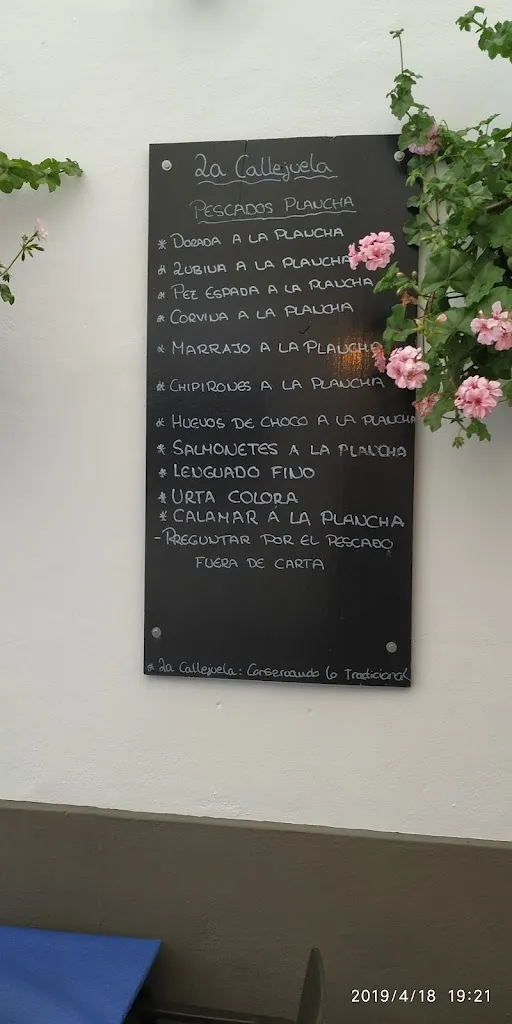 La Callejuela
PESCADOS PLANCHA
* DORADA A LA PLANCHA
* LUBINA A LA PLANCHA
* PEZ ESPADA A LA PLANCHA
* CORVINA A LA PLANCHA
* MARRAJO A LA PLANCHA
* CHIPIRONES A LA PLANCHA
* HUEVOS DE CHOCO A LA PLANCHA
* SALMONETES A LA PLANCHA
* LENGUADO FINO
* URTA COLORA
* CALAMAR A LA PLANCHA
- PREGUNTAR POR EL PESCADO
FUERA DE CARTA
* La Callejuela: Conservando lo Tradicional
2019/4/18 19:21